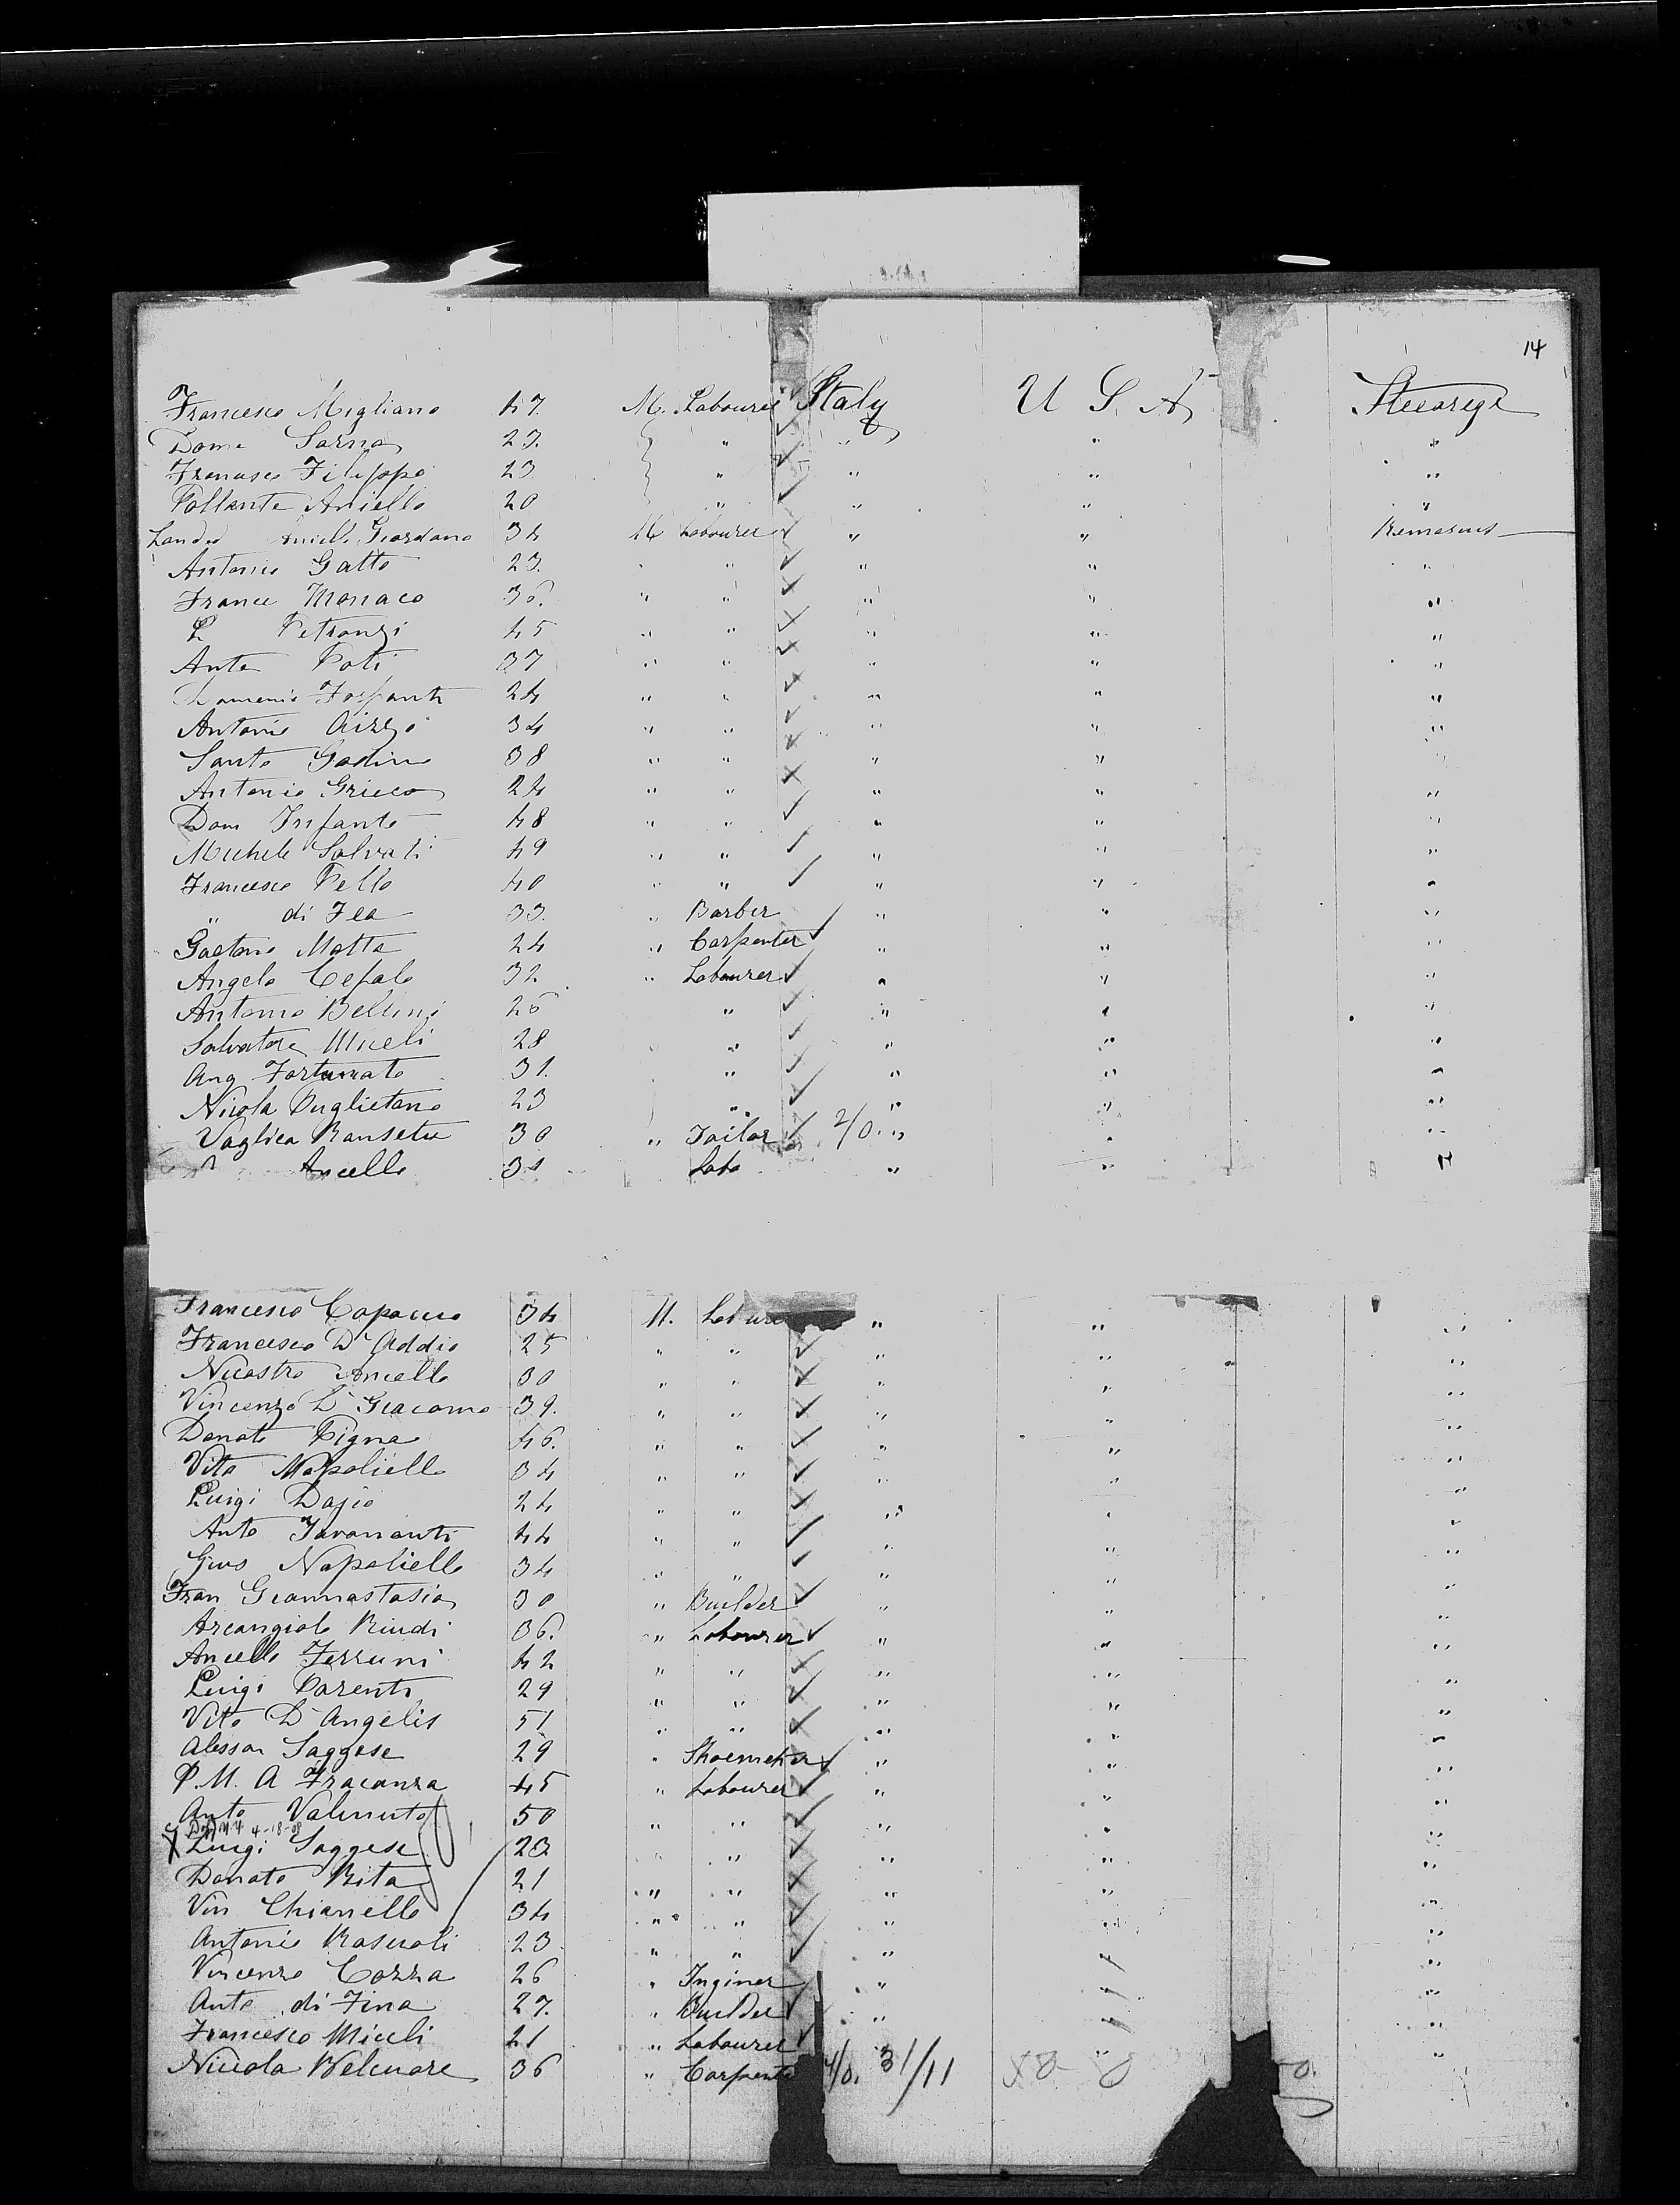 14
Francesco Migliano 47. M. Labourer Italy U S. A Steerage
Dome Sarna 27. " " " "
Francesco Filippo 23 " " " "
Pollante Aniello 20 " " " "
Aniello Giordano 34 M Labourer " "
Antonio Gatto 23. " " " "
France Monaco 36. " " " " "
Petronzi 45 " " " " "
Anto Poti 37 " " " " "
24 " " " " "
Antonio Rizzo 34 " " " " "
Santo Godino 38 " " " " "
Antonio Grieco 24 " " " " "
Dom Infante 48 " " " " "
Michele Salvati 49 " " " " "
Francesco Pello 40 " " " " "
" di Fea 33. " Barber " " "
Gaetano Motta 24 " Carpenter " " "
Angelo Cefalo 32 " Labourer " " "
Antonio Bellini 26 " " " "
Salvatore Miceli 28 " " " "
Ang Fortunato 31. " " " "
Nicola Puglietano 23 " " " "
Vaglica 30 " Tailor 2/0. " " "
Aniello 31 Labo " " "
Francesco Capaccio 34 M. Labourer " " "
Francesco D'Addio 25 " " " " "
Nicastro Aniello 30 " " " " "
Vincenzo D Giacomo 39. " " " " "
Donato Pigna 46. " " " " "
Vito Napoliello 34 " " " " "
Luigi Dajio 24 " " " " "
Anto 44 " " " " "
Gius Napoliello 34 " " " " "
Fran Giannastasio 30 " Builder " " "
Arcangiolo Rindi 36. " Labourer " " "
Aniello Ferruni 42 " " " " "
Luigi Parenti 29 " " " " "
Vito D'Angelis 51 " " " " "
Alessan Saggese 29 " Shoemeker " " "
P. M. A Fracanza 45 " Labourer " " "
Anto Valinuto 50 " " " " "
4-18-08
X Luigi Saggese 23 " " " " "
Donato Rita 21 " " " " "
Vin Chianello 34 " " " " "
Antonio Rascoli 23 " " " " "
Vincenzo Cozza 26 " Inginer " " "
Anto di Fina 27. " Builder " " "
Francesco Miceli 21 " Labourer " " "
Niccola Belcuore 36 " Carpente 31/11